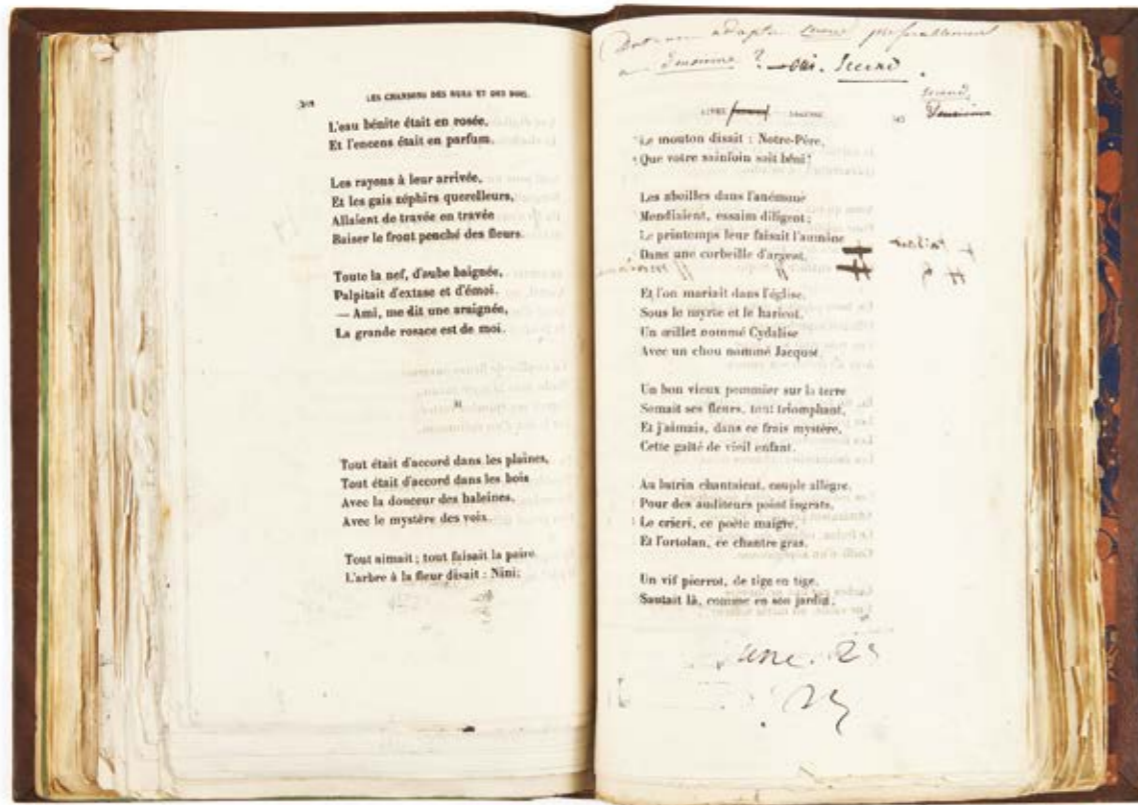 LES CHANSONS DES RUES ET DES BOIS.
L'eau bénite était en rosée,
Et l'encens était en parfum.
Les rayons à leur arrivée,
Et les gais zéphirs querelleurs,
Allaient de travée en travée
Baiser le front penché des fleurs.
Toute la nef, d'aube baignée,
Palpitait d'extase et d'émoi.
— Ami, me dit une araignée,
La grande rosace est de moi.
Tout était d'accord dans les plaines,
Tout était d'accord dans les bois
Avec la douceur des haleines,
Avec le mystère des voix.
Tout aimait; tout faisait la paire.
L'arbre à la fleur disait : Nini;
adapter second préférablement
à deuxième ? — oui. Second.
second
LIVRE DEUXIÈME
Le mouton disait : Notre-Père,
Que votre sainfoin soit béni!
Les abeilles dans l'anémone
Mendiaient, essaim diligent;
Le printemps leur faisait l'aumône
Dans une corbeille d'argent.
Et l'on mariait dans l'église,
Sous le myrte et le haricot,
Un œillet nommé Cydalise
Avec un chou nommé Jacquot.
Un bon vieux pommier sur la terre
Semait ses fleurs, tout triomphant,
Et j'aimais, dans ce frais mystère,
Cette gaîté de vieil enfant.
Au lutrin chantaient, couple allègre,
Pour des auditeurs point ingrats,
Le cricri, ce poëte maigre,
Et l'ortolan, ce chantre gras.
Un vif pierrot, de tige en tige,
Sautait là, comme en son jardin,